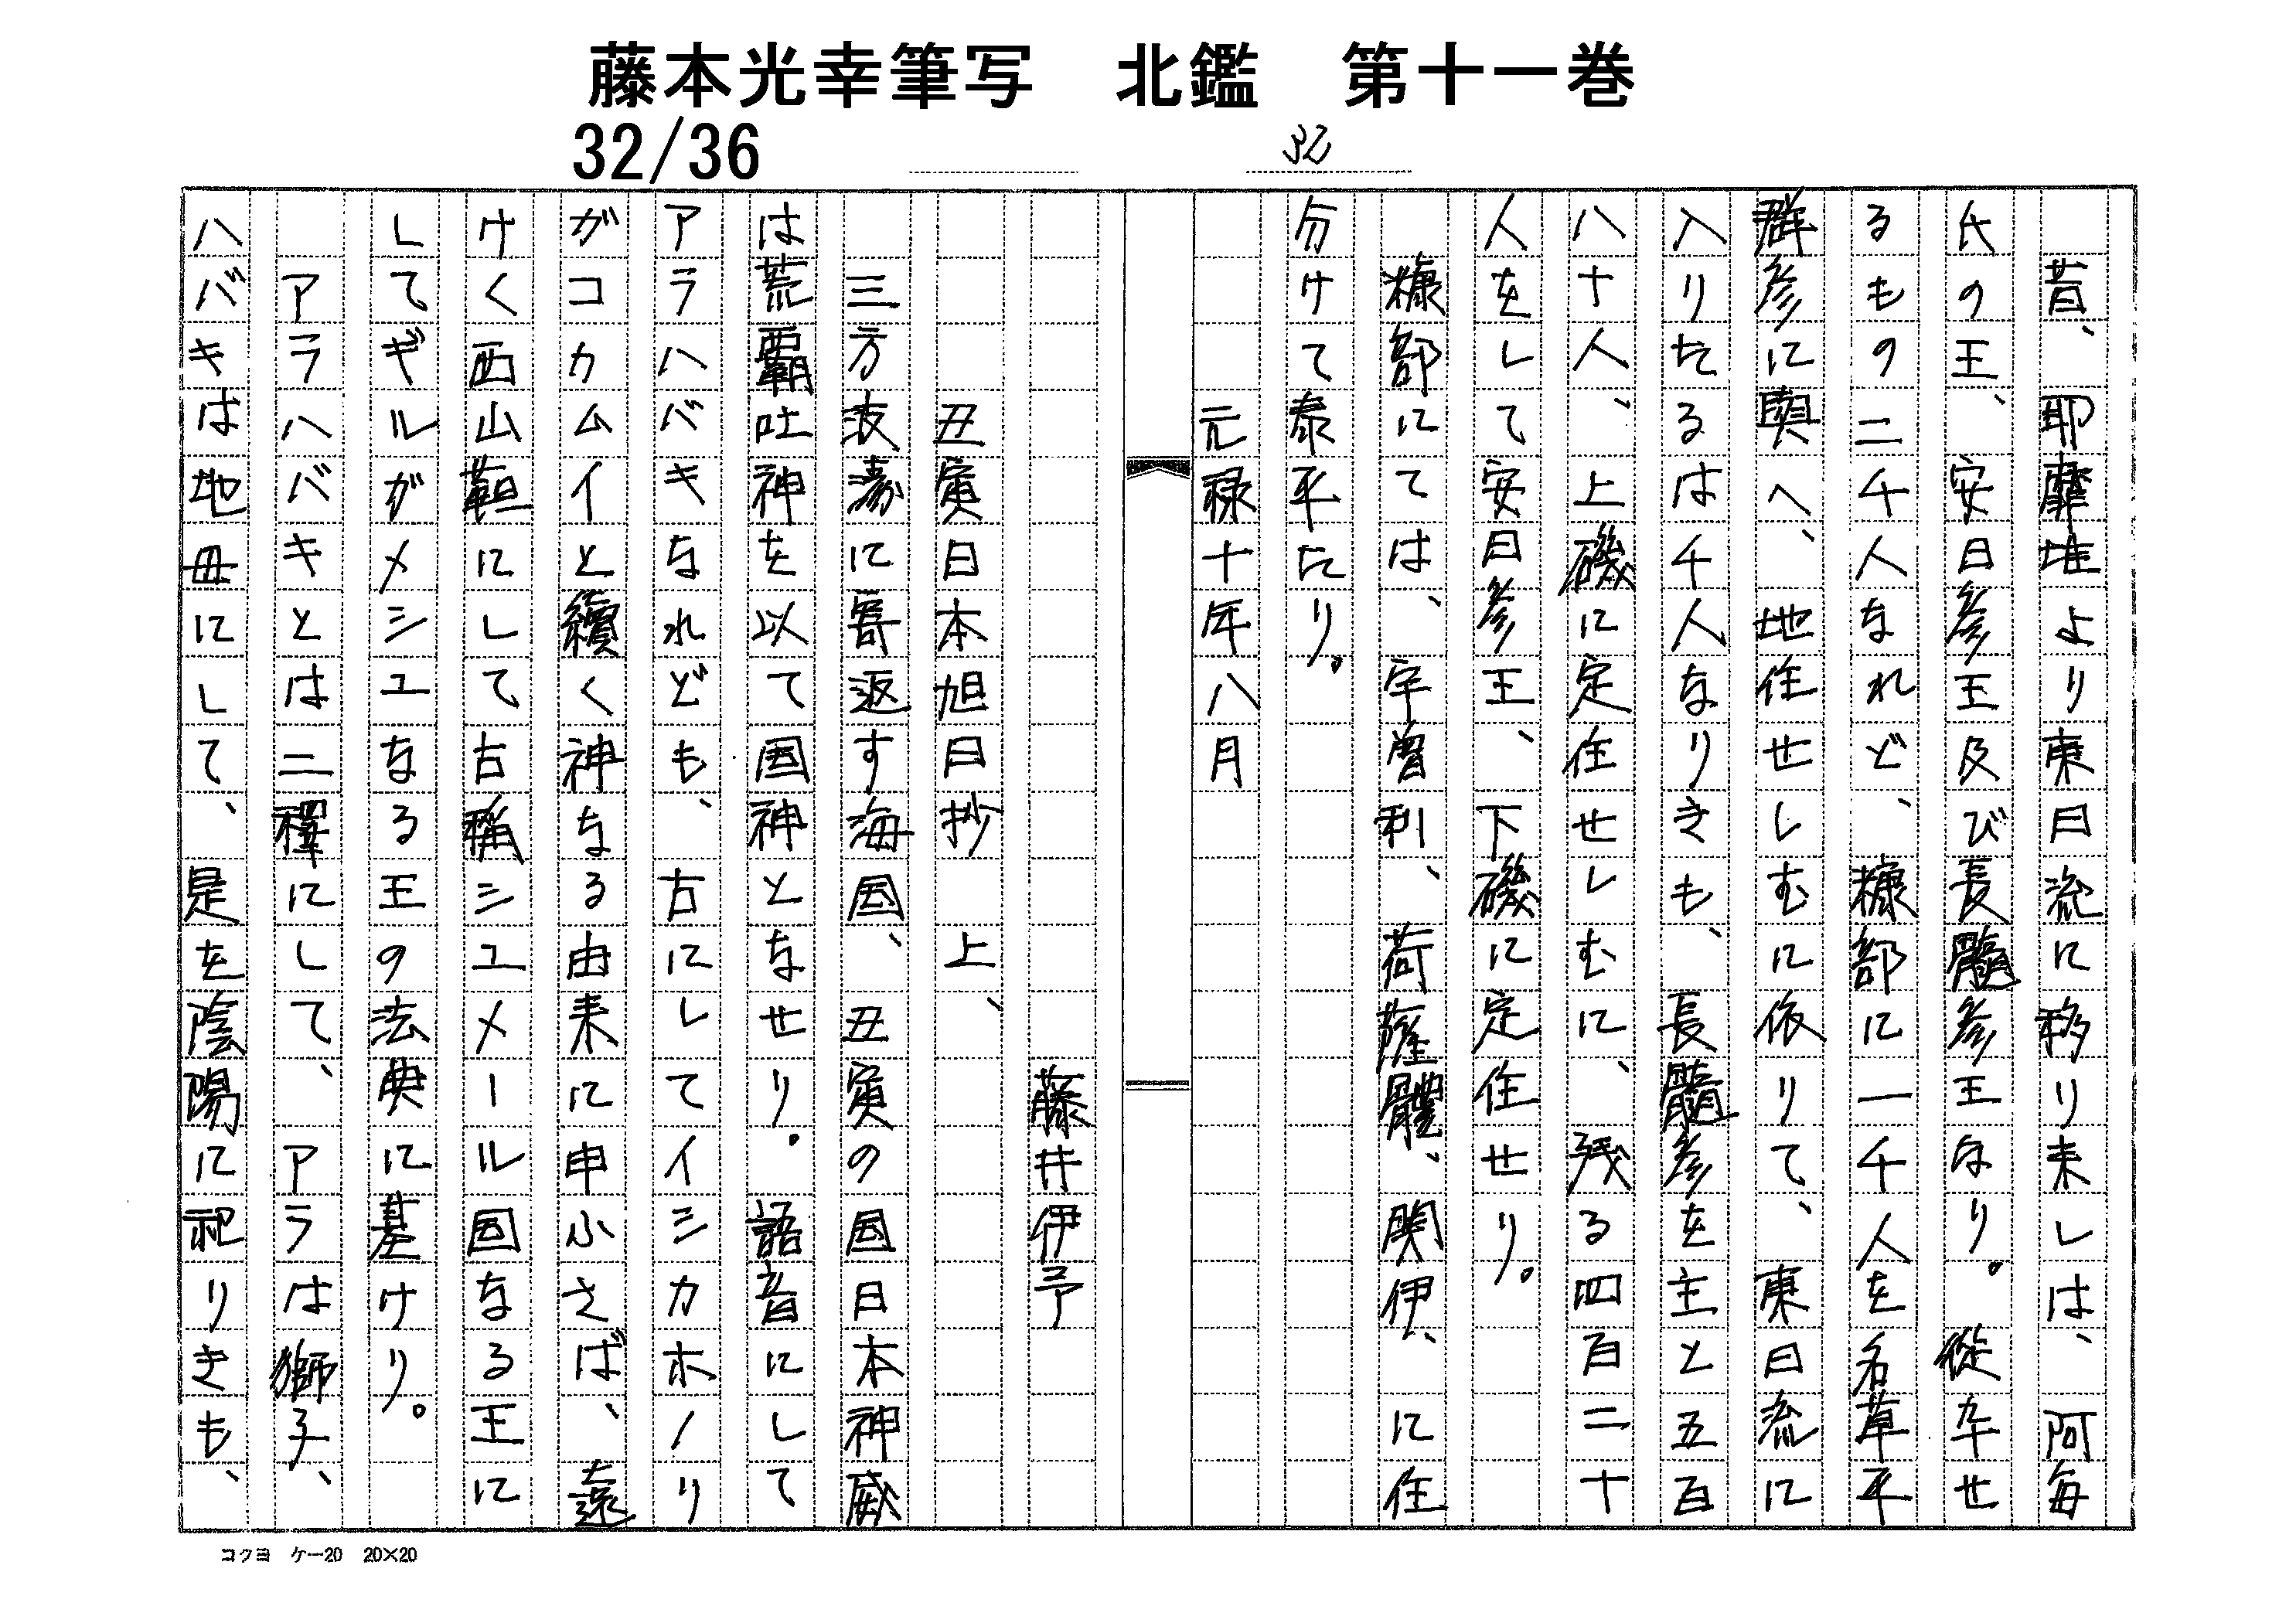 藤本光幸筆写　北鑑　第十一巻
32/36
昔、耶靡堆より東日流に移り来しは、阿毎
氏の王、安日彦王及び長髓彦王なり。從卆せ
るもの二千人なれど、糠部に一千人を名草平
群彦に與へ、地住せしむに依りて、東日流に
入りたるは千人なりきも、長髓彦を主と五百
八十人、上磯に定住せしむに、残る四百二十
人をして安日彦王、下磯に定住せり。
糠部にては、宇曽利、荷薩體、関伊、に住
分けて泰平たり。
元禄十年八月
藤井伊予
丑寅日本旭日抄　上、
三方波濤に寄返す海国、丑寅の国日本神威
は荒覇吐神を以て国神となせり。語音にして
アラハバキなれども、古にしてイシカホノリ
がコカムイと續く神なる由来に申ふさば、遠
けく西山靼にして古稱シユメール国なる王に
してギルガメシユなる王の法典に基けり。
アラハバキとは二種にして、アラは獅子、
ハバキは地母にして、是を陰陽に祀りきも、
コクヨ　ケー20　20×20